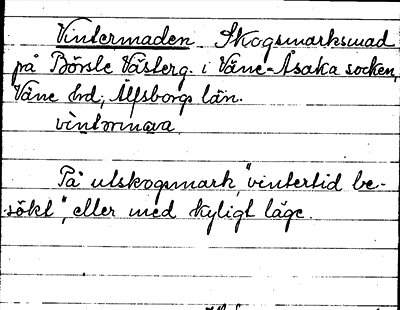 Vintermaden Skogsmarksmad
på Börsle Västerg. i Väne-Åsaka socken,
Väne hd, Älfsborgs län.
vìntərmava
På utskogsmark, "vintertid be-
sökt", eller med kyligt läge.